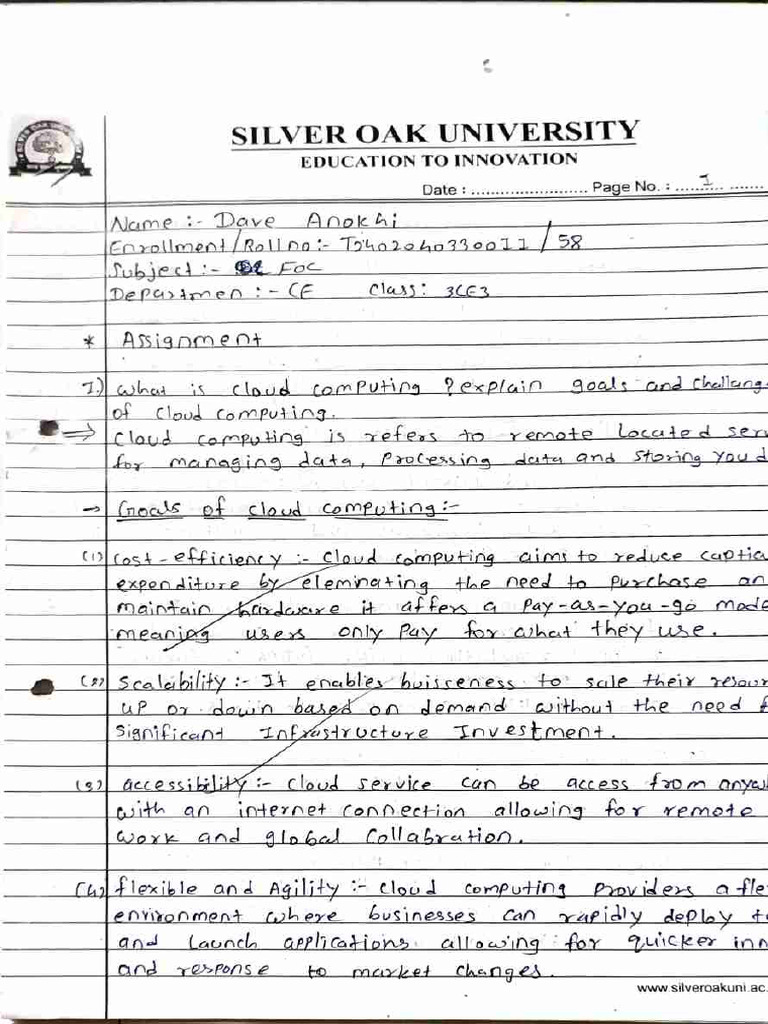 SILVER OAK UNIVERSITY
EDUCATION TO INNOVATION
Date : ........................ Page No. : ......... 1 .......
Name :- Dave Anokhi
Enrollment/Roll no:- T2402040330011 / 58
Subject :- FOC
Departmen :- CE Class: 3CE3
* Assignment
1) What is cloud computing ? explain goals and challeng
of cloud computing.
=> cloud computing is refers to remote located ser
for managing data, processing data and storing you d
→ Goals of cloud computing :-
(1) cost-efficiency :- cloud computing aims to reduce captia
expenditure by eleminating the need to purchase an
maintain hardware it affers a pay-as-you-go mode
meaning users only pay for what they use.
(2) scalability :- It enables buisseness to sale their resour
up or down based on demand without the need f
significant Infrastructure Investment.
(3) accessibility :- cloud service can be access from anyw
with an internet connection allowing for remote
work and global collabration.
(4) flexible and Agility :- cloud computing providers a fle
environment where businesses can rapidly deploy t
and launch applications allowing for quicker inn
and response to market changes.
www.silveroakuni.ac.